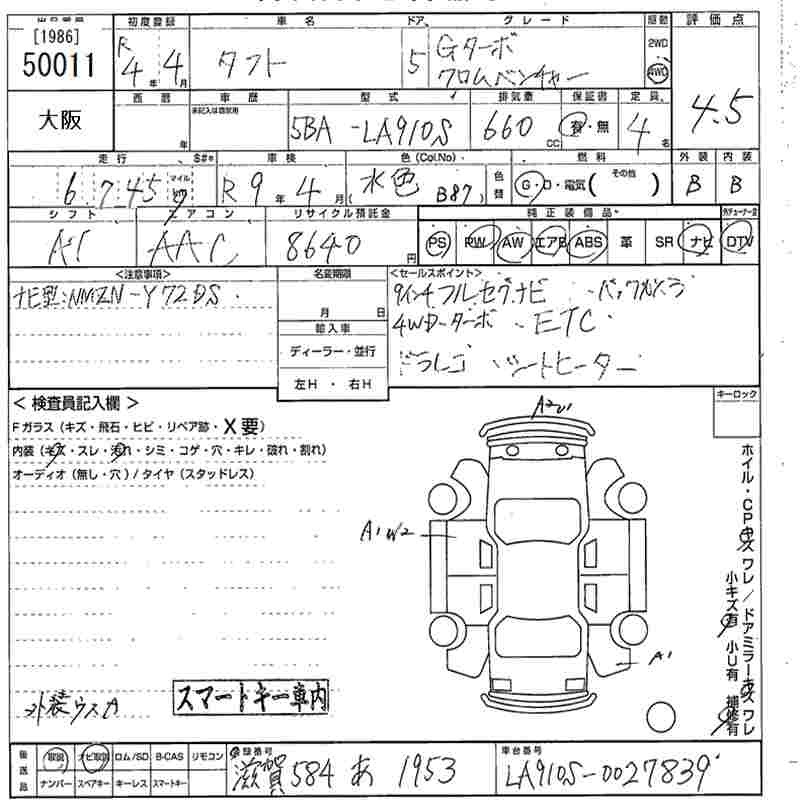 [1986] 初度登録 車名 ドア グレード 駆動 評価点
50011 R 4年 4月 タフト 5 Gターボ 2WD
クロムベンチャー 4WD 4.5
大阪 西暦 車歴 型式 排気量 保証書 定員
年 未記入は自家用 5BA -LA910S 660CC 有・無 4名
走行 S#* 車検 色(Col.No) 燃料 外装 内装
6 7 45 マイル km R9年 4月( 水色 B87) 色替 G・D・電気( その他 ) B B
シフト エアコン リサイクル預託金 純正装備品
AT AAC 8640円 PS PW AW エアB ABS 革 SR ナビ DTV
<注意事項> 名変期限 <セールスポイント>
ナビ型:NMZN-Y72DS 月 日 9インチフルセグナビ ・バックカメラ
輸入車 4WD・ターボ ・ETC
ディーラー・並行 ドラレコ ・シートヒーター
左H ・ 右H
<検査員記入欄> キーロック
Fガラス(キズ・飛石・ヒビ・リペア跡・X要)
内装(キズ・スレ・汚れ・シミ・コゲ・穴・キレ・破れ・割れ)
オーディオ(無し・穴)/タイヤ(スタッドレス)
A1
A1
ホイル・CPキズ ワレ/ドアミラーキズ ワレ
小キズ有 小U有 補修有
外装ウスカ
スマートキー車内
後送品 取説 ナビ取説 ロム/SD B-CAS リモコン 登録番号 車台番号
ナンバー スペアキー キーレス スマートキー 滋賀 584 あ 1953 LA910S-0027839